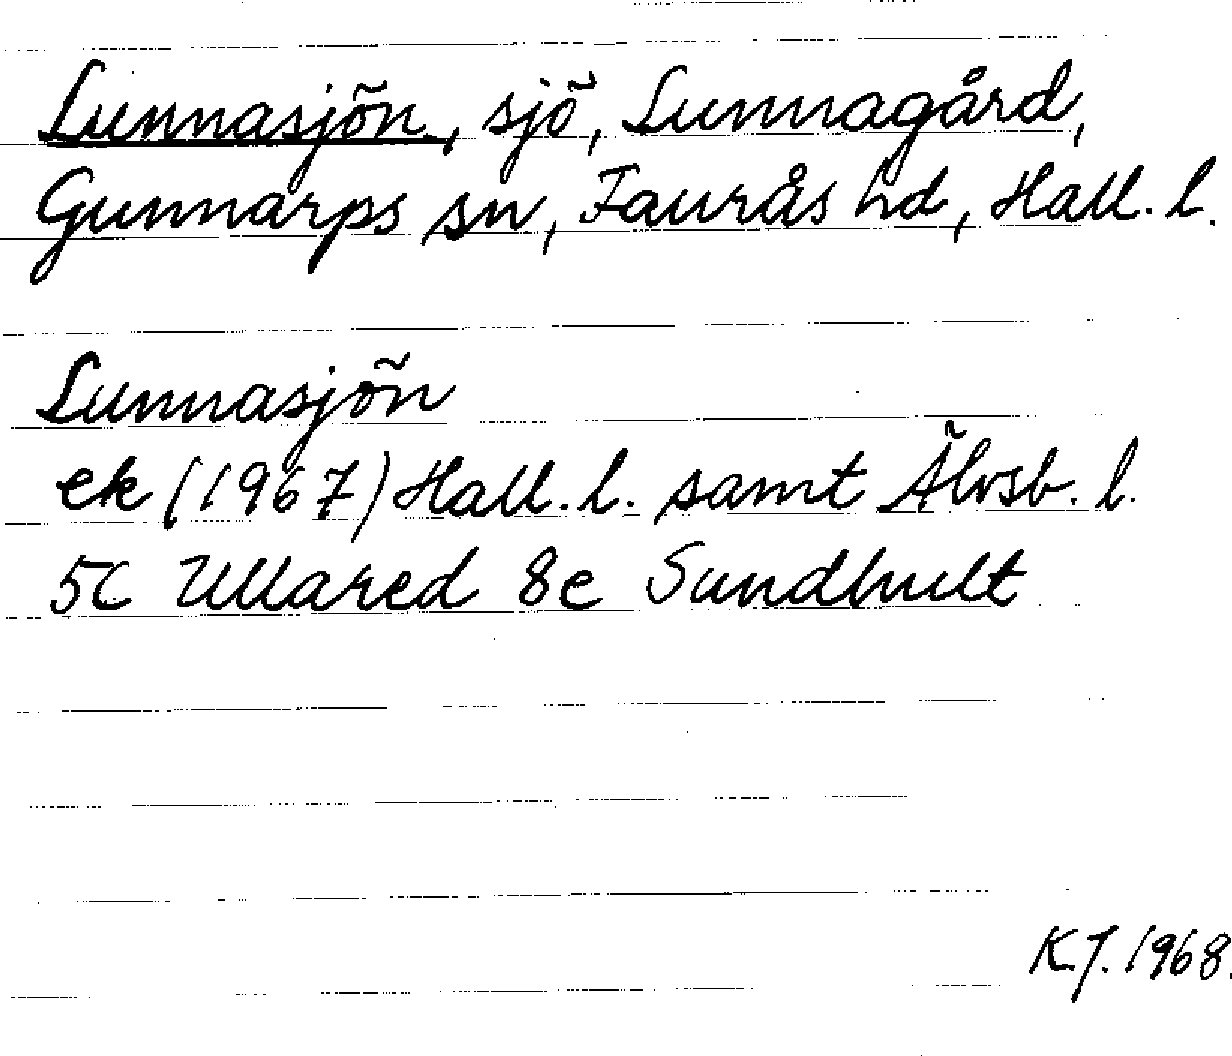 Lunnasjön, sjö, Lunnagård,
Gunnarps sn, Faurås hd, Hall. l.
Lunnasjön
ek (1967) Hall. l. samt Älvsb. l.
5C Ullared 8e Sundhult
K.J. 1968.